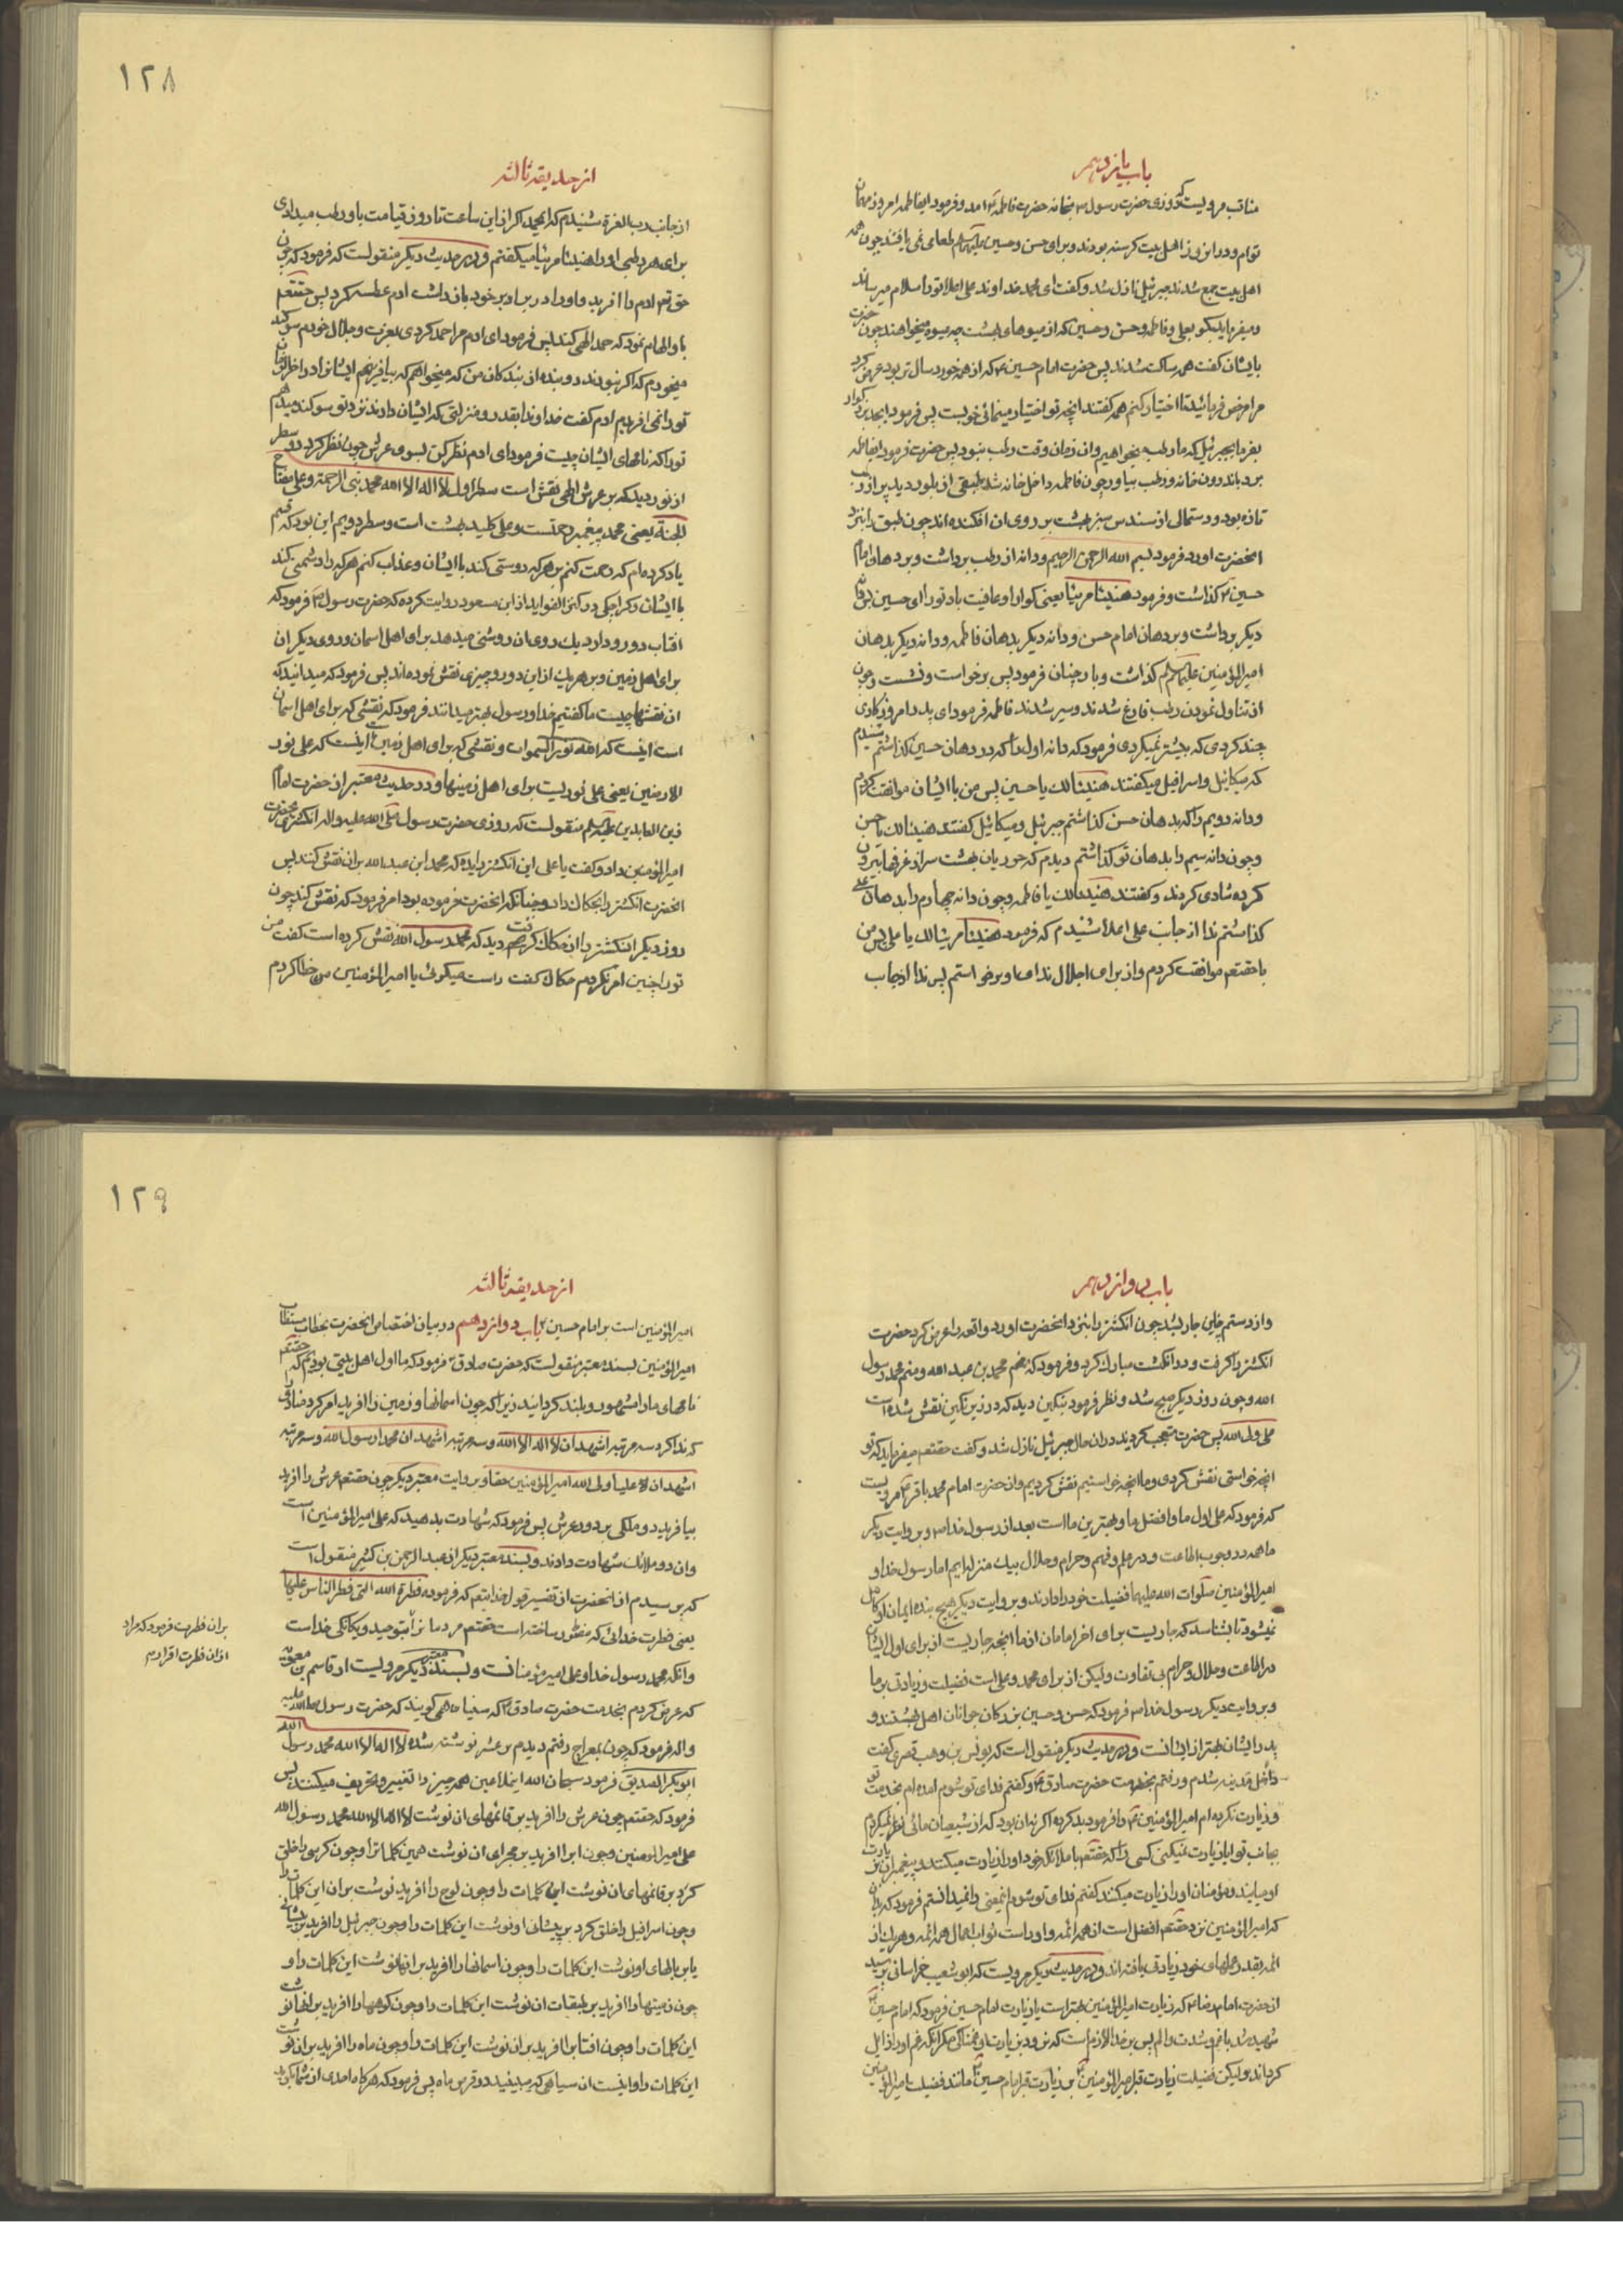 باب یازدهم
مناقب مرویست که روزی حضرت رسول ص بخانه حضرت فاطمه ع آمد و فرمود ایفاطمه امروز مهمان
توام و در انروز اهل بیت کرسنه بودند و برای حسن و حسین علیهم السلم طعامی نمی یافتند چون همه
اهل بیت جمع شدند جبرئیل نازل شد و کفت ای محمد خداوند علی اعلا تو را سلام میرساند
و میفرماید بکو بعلی و فاطمه و حسن و حسین که از میوهای بهشت چه میوه میخواهند چون حضرت
بایشان کفت همه ساکت شدند پس حضرت امام حسین ع که از همه خورد سال تر بود عرض کرد
مرا مرخص فرمائید تا اختیار کنم همه کفتند انچه تو اختیار مینمائی خوبست پس فرمود ایجد بزرکوار
بفرما بجبرئیل که ما رطب میخواهیم و ان زمان وقت رطب نبود پس حضرت فرمود ایفاطمه
برو باندرون خانه و رطب بیاور چون فاطمه داخل خانه شد طبقی از بلور دید پر از رطب
تازه بود و دستمالی از سندس سبز بهشت بر روی ان افکنده اند چون طبق را بنزد
انحضرت اورد فرمود بسم الله الرحمن الرحیم و دانه از رطب برداشت و بردهان امام
حسین ع کذاشت و فرمود هنیئا مریئا یعنی کوارا و عافیت باد تو را ای حسین پس دانه
دیکر برداشت و بردهان امام حسن و دانه دیکر بدهان فاطمه و دانه دیکر بدهان
امیرالمؤمنین علیهم السلم کذاشت و باز چنان فرمود پس برخواست و نشست و چون
از تناول نمودن رطب فارغ شدند و سیر شدند فاطمه فرمود ای پدر امروز کاری
چند کردی که بیشتر نمیکردی فرمود که دانه اول را که در دهان حسین کذاشتم شنیدم
که میکائیل و اسرافیل میکفتند هنیئا لک یا حسین پس من با ایشان موافقت کردم
و دانه دویم را که بدهان حسن کذاشتم جبرئیل و میکائیل کفتند هنیئا لک یا حسن
و چون دانه سیم را بدهان تو کذاشتم دیدم که حوریان بهشت سر از غرفها بیرون
کرده شادی کردند و کفتند هنیئا لک یا فاطمه و چون دانه چهارم را بدهان علی
کذاشتم ندا از جانب علی اعلا شنیدم که فرمود هنیئا مریئا لک یا علی پس من
با حقتعم موافقت کردم و از برای اجلال ندای او برخواستم پس ندا از جانب
۱۲۸
از حدیقه ثالثه
از جانب رب العزة شنیدم که ایمحمد اکر از این ساعت تا روز قیامت باو رطب میدادی
برای هر رطبی او را هنیئا مریئا میکفتم و در حدیث دیکر منقولست که فرمود که چون
حق تعم ادم را افرید و او را در برابر خود بازداشت ادم عطسه کرد پس حقتعم
باو الهام نمود که حمد الهی کند پس فرمود ای ادم مرا حمد کردی بعزت و جلال خودم سوکند
میخورم که اکر نبودند دو بنده از بندکان من که میخواهم که بیافرینم ایشانرا در اخر الزمان
تو را نمی افریدم ادم کفت خداوندا بقدر و منزلتی که ایشان دارند نزد تو سوکند میدهم
تو را که نامهای ایشان چیست فرمود ای ادم نظر کن بسوی عرش چون نظر کرد دو سطر
از نور دید که بر عرش الهی نقش است سطر اول لا اله الا الله محمد نبی الرحمة و علی مفتاح
الجنة یعنی محمد پیغمبر رحمتست و علی کلید بهشت است و سطر دویم این بود که قسم
یاد کرده ام که رحمت کنم بر هر که دوستی کند با ایشان و عذاب کنم هر که را دشمنی کند
با ایشان و کراجکی در کنز الفواید از ابن مسعود روایت کرده که حضرت رسول ص فرمود که
افتاب دو رو دارد یک روی ان روشنی میدهد برای اهل اسمان و روی دیکر ان
برای اهل زمین و بر هر یک از این دو رو چیزی نقش نموده اند پس فرمود که میدانید که
ان نقشها چیست ما کفتیم خدا و رسول بهتر میدانند فرمود که نقشی که برای اهل اسمان
است اینست که الله نور السموات و نقشی که برای اهل زمین است اینست که علی نور
الارضین یعنی علی نوریست برای اهل زمینها و در حدیث معتبر از حضرت امام
زین العابدین علیه السلم منقولست که روزی حضرت رسول صلی الله علیه و اله انکشتری بحضرت
امیرالمؤمنین داد و کفت یا علی این انکشتر را بده که محمد ابن عبد الله بران نقش کنند پس
انحضرت انکشتر را بحکاک داد و چنانکه انحضرت فرموده بود امر فرمود که نقش کند چون
روز دیکر انکشتر را از حکاک کرفت دید که محمد رسول الله نقش کرده است کفت من
تو را چنین امر نکردم حکاک کفت راست میکوئی یا امیر المؤمنین من خطا کردم
باب دوازدهم
و از دستم چنین جاری شد چون انکشتر را بنزد انحضرت اورد و واقعه را عرض کرد حضرت
انکشتر را کرفت و در انکشت مبارک کرد و فرمود که منم محمد بن عبد الله و منم محمد رسول
الله و چون روز دیکر صبح شد و نظر فرمود بنکین دید که در زیر نکین نقش شده است
علی ولی الله پس حضرت متعجب کردید در ان حال جبرئیل نازل شد و کفت حقتعم میفرماید که تو
انچه خواستی نقش کردی و ما انچه خواستیم نقش کردیم و از حضرت امام محمد باقر ع مرویست
که فرمود که علی اول ما و افضل ما و بهترین ما است بعد از رسول خدا ص و بروایت دیکر
ما همه در وجوب اطاعت و در علم و فهم و حرام و حلال بیک منزله ایم اما رسول خدا و
امیر المؤمنین صلوات الله علیهما فضیلت خود را دارند و بروایت دیکر هیچ بنده ایمان او کامل
نمیشود تا بشناسد که جاریست برای اخر امامان از ما انچه جاریست از برای اول ایشان
در اطاعت و حلال و حرام بی تفاوت ولیکن از برای محمد و علی است فضیلت و زیادتی بر ما
و بروایت دیکر رسول خدا ص فرمود که حسن و حسین بزرکان جوانان اهل بهشتند و
پدر ایشان بهتر از ایشانست و در حدیث دیکر منقول است که یونس بن وهب قصری کفت
داخل مدینه شدم و رفتم بخدمت حضرت صادق ع و کفتم فدای تو شوم امده ام بخدمت تو
و زیارت نکرده ام امیر المؤمنین ع را فرمود بد کرده اکر نه ان بود که از شیعیان مائی نظر نمیکردم
بجانب تو ایا زیارت نمیکنی کسی را که حقتعم با ملائکه خود او را زیارت میکنند و پیغمبران بزیارت
او میایند و مؤمنان او را زیارت میکنند کفتم فدای تو شوم اینمعنی را نمیدانستم فرمود که بدان
که امیر المؤمنین نزد حقتعم افضل است از همه ائمه و او راست ثواب اعمال همه ائمه و هریک از
ائمه بقدر عملهای خود زیادتی یافته اند و در حدیث دیکر مرویست که ابو شعیب خراسانی پرسید
از حضرت امام رضا ع که زیارت امیر المؤمنین بهتر است یا زیارت امام حسین فرمود که امام حسین ع
شهید شد با غم و شدت و الم پس بر خدا لازم است که نرود بزیارت او غمناکی مکر انکه غم او را زایل
کرداند ولیکن فضیلت زیارت قبر امیر المؤمنین ع بر زیارت قبر امام حسین ع مانند فضیلت امیر المؤمنین
۱۲۹
از حدیقه ثالثه
امیر المؤمنین است بر امام حسین ع باب دوازدهم در بیان اختصاص انحضرت بخطاب مستطاب
امیر المؤمنین بسند معتبر منقولست که حضرت صادق ع فرمود که ما اول اهل بیتی بودیم که حقتعم
نامهای ما را مشهور و بلند کردانید زیرا که چون اسمانها و زمین را افرید امر کرد منادی
که ندا کرد سه مرتبه اشهد ان لا اله الا الله و سه مرتبه اشهد ان محمدا رسول الله و سه مرتبه
اشهد ان علیا ولی الله امیر المؤمنین حقا و بروایت معتبر دیکر چون حقتعم عرش را افرید
بیافرید دو ملکی بر دور عرش پس فرمود که شهادت بدهید که علی امیر المؤمنین است
و ان دو ملائک شهادت دادند و بسند معتبر دیکر از عبد الرحمن بن کثیر منقول است
که پرسیدم از انحضرت از تفسیر قول خدایتعم که فرموده فطرة الله التی فطر الناس علیها
یعنی فطرت خدائی که مفطور ساخته است حقتعم مردمانرا بتوحید و یکانکی خداست
بران فطرت فرمود که مراد
از ان فطرت اقرارم
و انکه محمد رسول خدا و علی امیر مؤمنانست و بسند معتبر دیکر مرویست از قاسم بن معویه
که عرض کردم بخدمت حضرت صادق ع که سنیان می کویند که حضرت رسول صلی الله علیه
و اله فرمود که چون بمعراج رفتم دیدم بر عرش نوشته شده لا اله الا الله محمد رسول الله
ابو بکر الصدیق فرمود سبحان الله اینملاعین همه چیز را تغییر و تحریف میکنند پس
فرمود که حقتعم چون عرش را افرید بر قائمهای ان نوشت لا اله الا الله محمد رسول الله
علی امیر المؤمنین و چون اب را افرید بر مجرای ان نوشت همین کلمات را و چون کرسی را خلق
کرد بر قائمهای ان نوشت این کلمات را و چون لوح را افرید نوشت بران این کلمات را
و چون اسرافیل را خلق کرد بر پیشانی او نوشت این کلمات را و چون جبرئیل را افرید بر پیشانی
یا بر بالهای او نوشت این کلمات را و چون اسمانها را افرید بر انها نوشت این کلمات را و
چون زمینها را افرید بر طبقات ان نوشت این کلمات را و چون کوهها را افرید بر انها نوشت
این کلمات را و چون افتاب را افرید بر ان نوشت این کلمات را و چون ماه را افرید بر ان نوشت
این کلمات را و اینست ان سیاهی که میبینید در قرص ماه پس فرمود که هرکاه احدی از شما بکوید